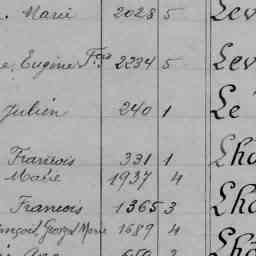 . Marie 2028 5 Lev
e, Eugène Fçs 2234 5 Lev
Julien 240 1 Le
Francois 331 1 Lho
Marie 1937 4
Francois 1365 3 Lho
ançois, Georges Marie 1689 4 Lho